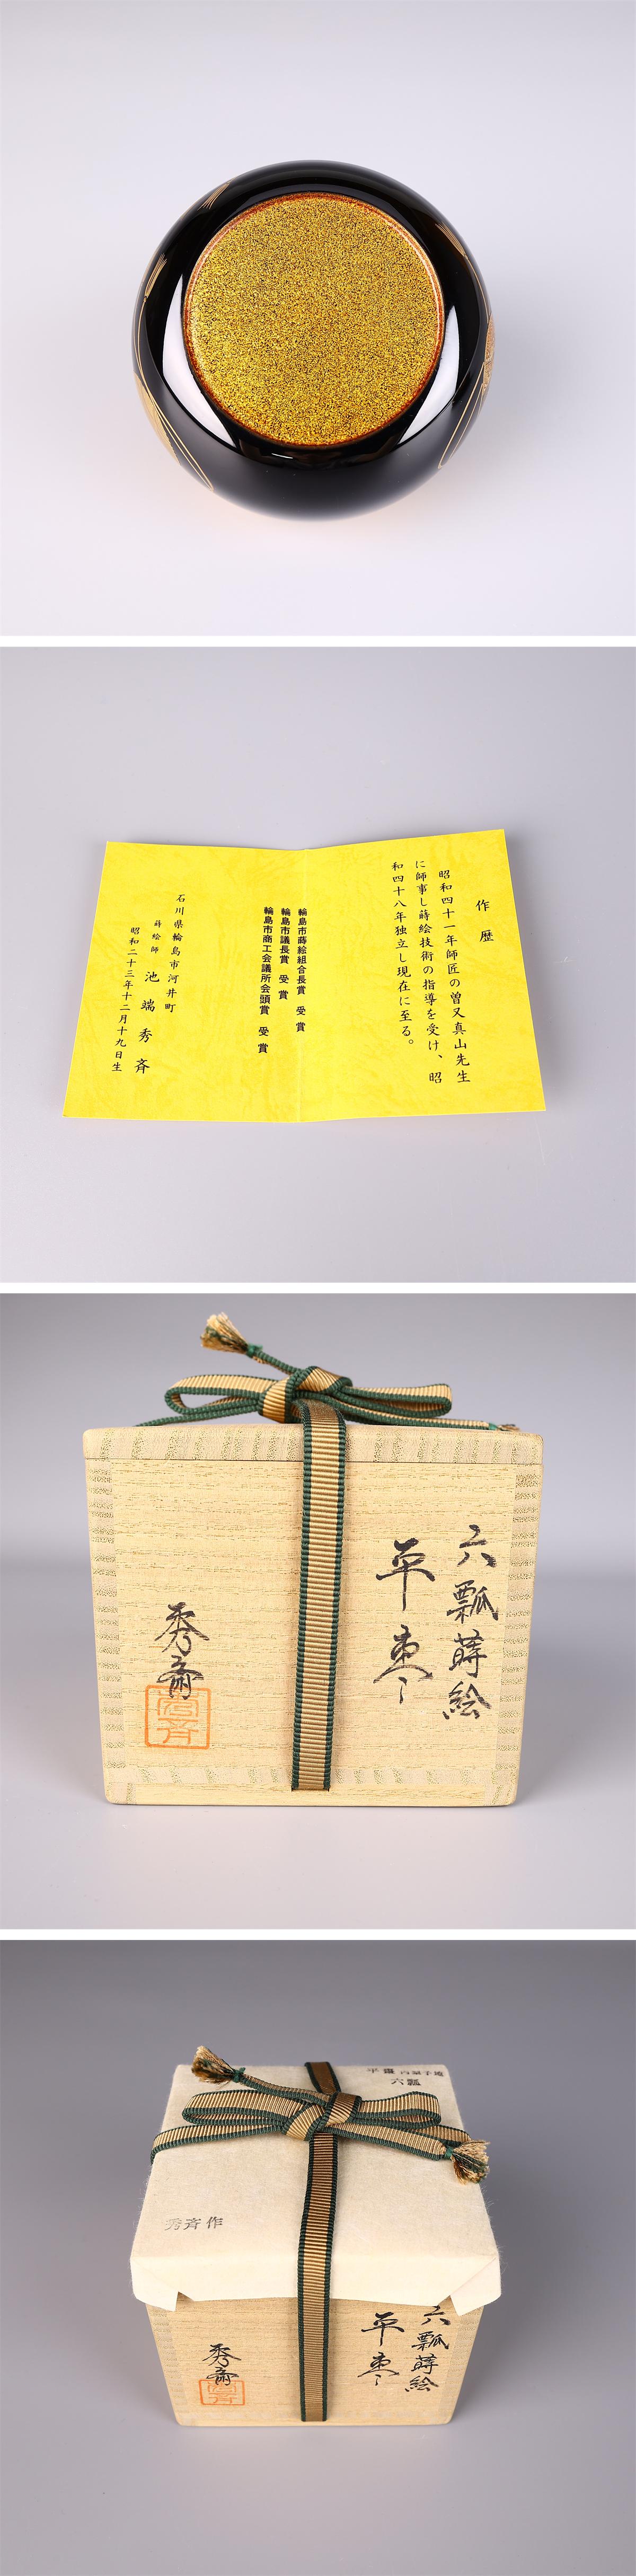 作歴
昭和四十一年師匠の曽又真山先生
に師事し蒔絵技術の指導を受け、昭
和四十八年独立し現在に至る。
輪島市蒔絵組合長賞 受賞
輪島市議長賞 受賞
輪島市商工会議所会頭賞 受賞
石川県輪島市河井町
蒔絵師 池端秀斉
昭和二十三年十二月十九日生
六瓢蒔絵
平棗
秀斎
六瓢
秀斉作
六瓢蒔絵
平棗
秀斎